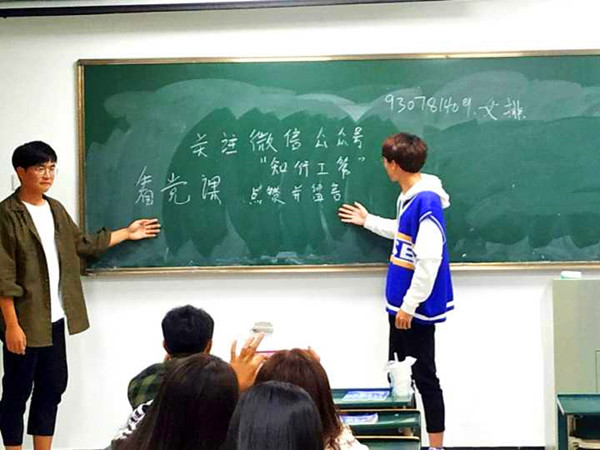 930781409.女排
关注微信公众号
"知行工管"
看党课 点赞并留言